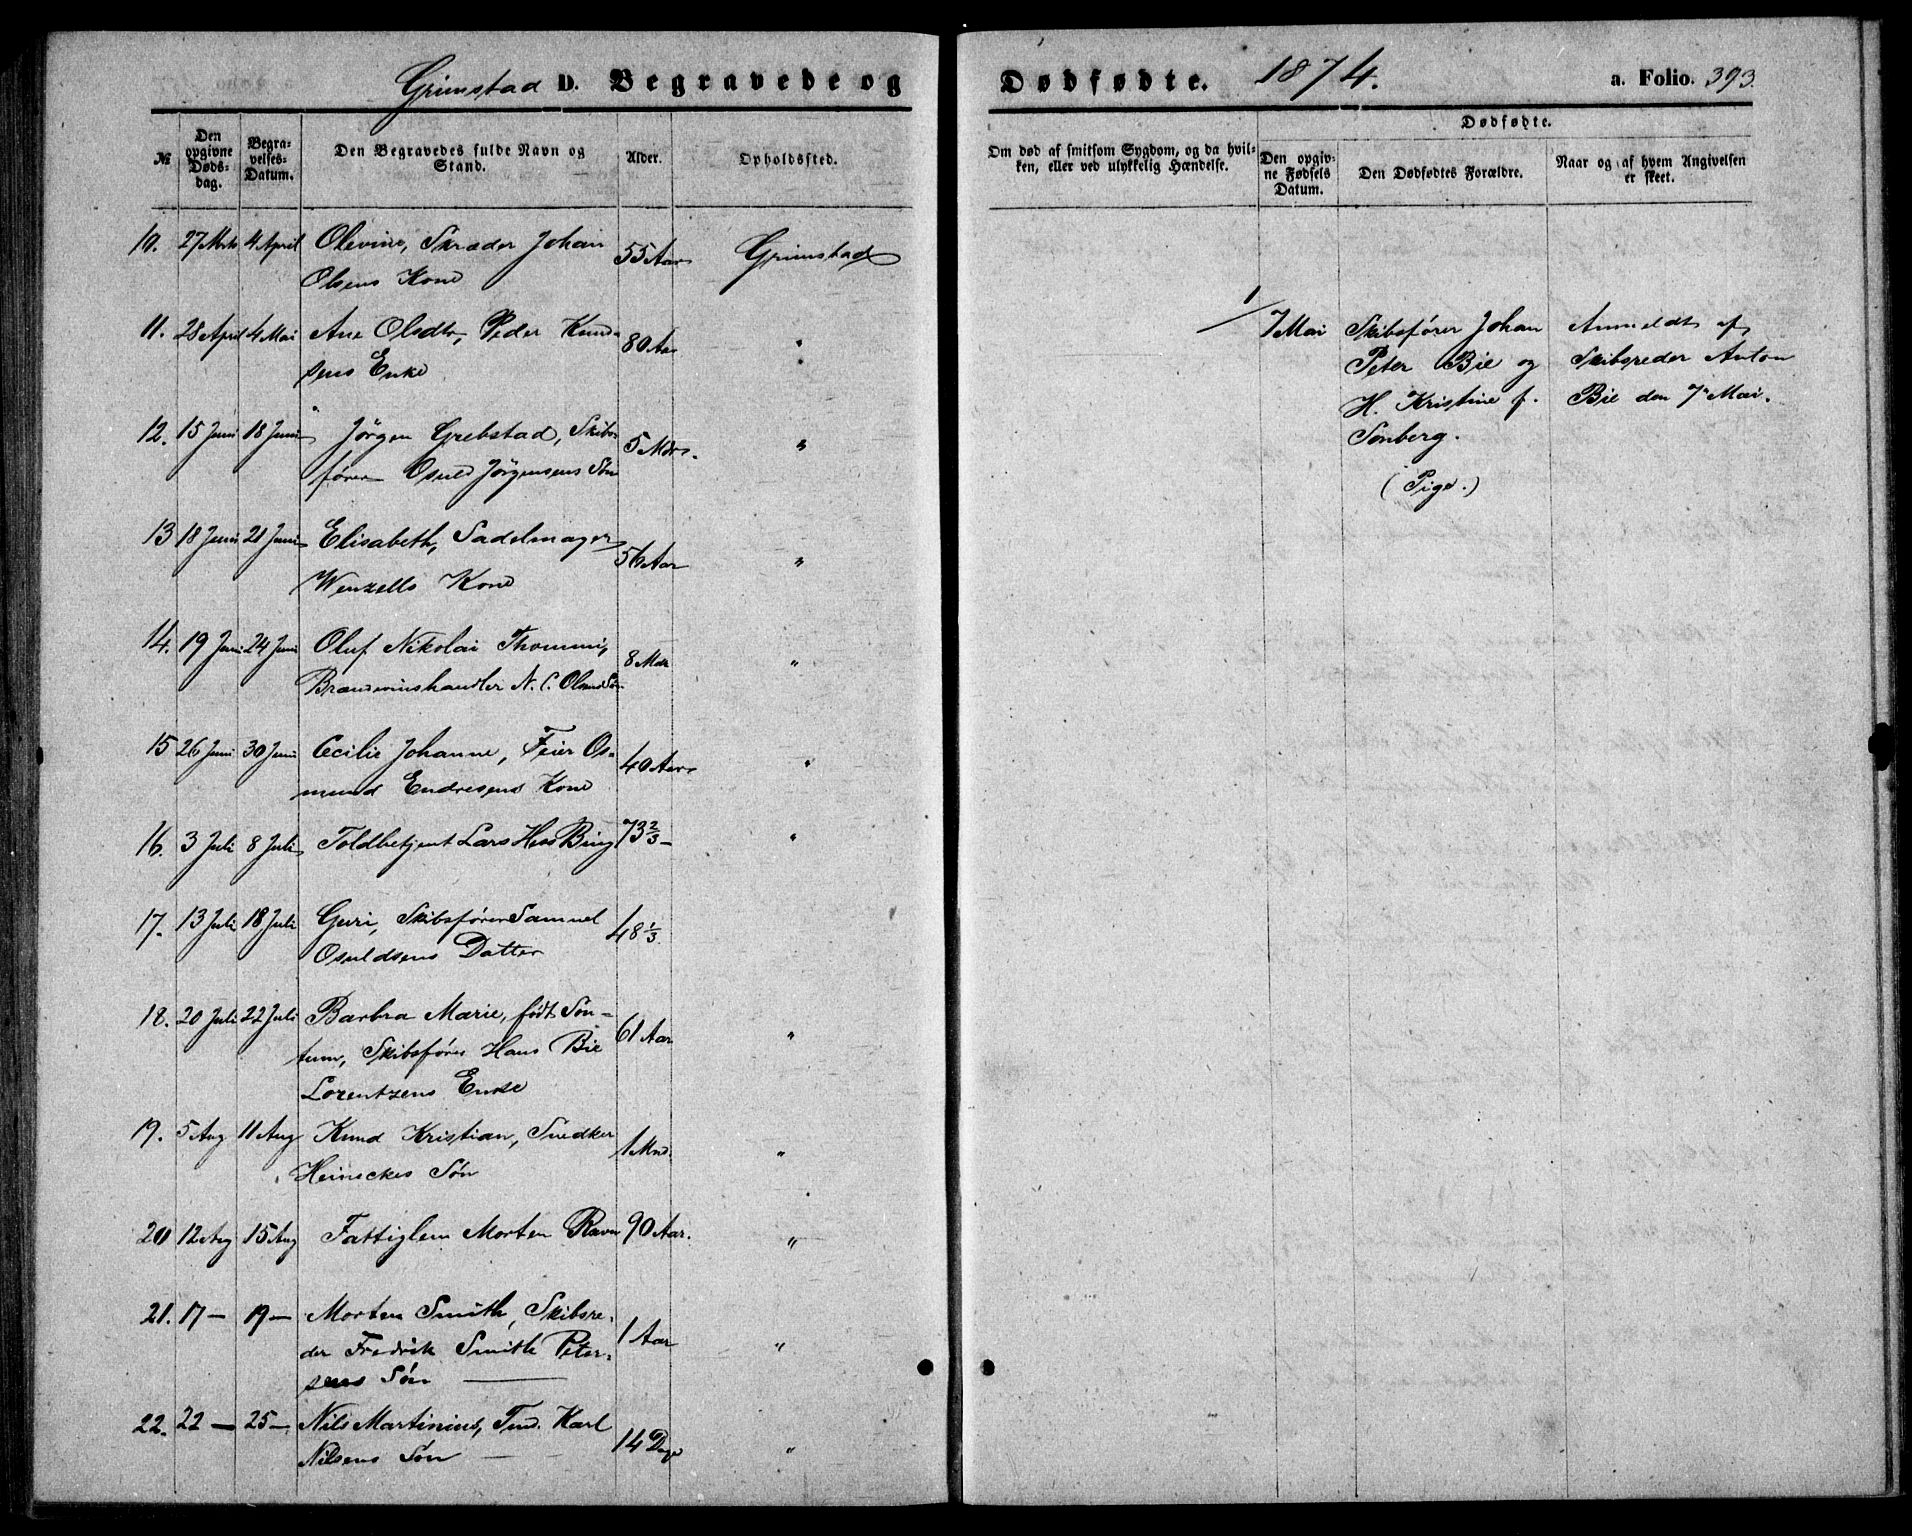 Grimstad D. Begravede og Dødfødte. 1874. a. Folio. 393.
№
Den opgivne Døds-dag.
Begra-velses-Datum.
Den Begravedes fulde Navn og Stand.
Alder.
Opholdssted.
Om død af smitsom Sygdom, og da hvil-
ken, eller ved ulykkelig Hændelse.
Dødfødte.
Den opgiv-
ne Fødsels
Datum.
Den Dødfødtes Forældre.
Naar og af hvem Angivelsen
er skeet.
10. 27 Marts 4 April Olevine, Skræder Johan 55 Aar Grimstad
Olsens Kone
11. 28 April 4 Mai Ane Olsdtr, Peder Knud- 80 Aar "
sens Enke
12. 15 Juni 18 Juni Jörgen Grebstad, Skibs- 5 Mdr. "
förer Osuld Jörgensens Søn
13 18 Juni 21 Juni Elisabeth, Sadelmager 56 Aar "
Wenzells Kone
14. 19 Juni 24 Juni Oluf Nikolai Thommi, 8 Mdr "
Brændevinshandler N. C. Olsens Søn
15 26 Juni 30 Juni Cecilie Johanne, Feier Os- 40 Aar "
mund Endresens Kone
16. 3 Juli 8 Juli Toldbetjent Lars Hess Bing 73 2/3 — "
17. 13 Juli 18 Juli Guri, Skibsfører Samuel 48 1/3.
Osuldsens Datter
18. 20 Juli 22 Juli Barbra Marie, født Søn- 61 Aar "
tum, Skibsfører Hans Bie
Lorentzens Enke
19. 5 Aug 11 Aug Knud Kristian, Snedker 1 Mnd. "
Heinsckes Søn
20 12 Aug 15 Aug Fattiglem Morten Ravn 90 Aar. "
21. 17 — 19 — Morten Smith, Skibsre- 1 Aar "
der Fredrik Smith Peter-
sens Søn
22. 22 — 25 — Nils Martinius, Tmd. Karl 14 Dage "
Nilsens Søn
1/ 7 Mai Skibsfører Johan Anmeldt af
Peter Bie og Skibsreder Anton
H. Kristine f. Bie den 7 Mai.
Sonberg.
(Pige.)